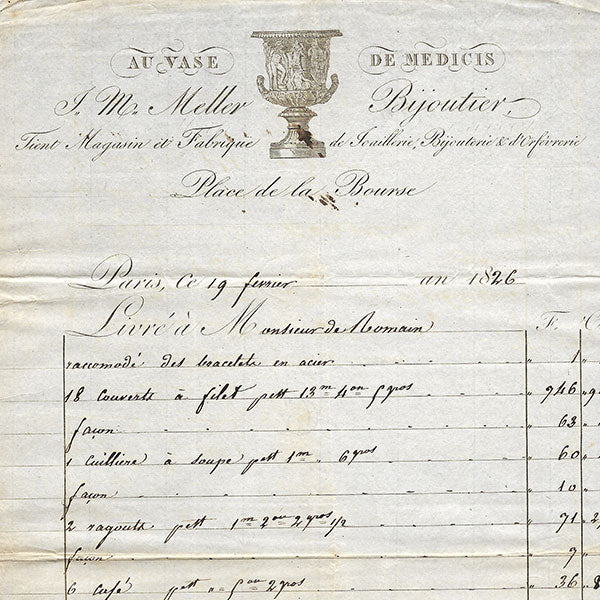 AU VASE DE MEDICIS
J. M. Meller Bijoutier,
Tient Magasin et Fabrique de Joaillerie, Bijouterie & d'Orfévrerie
Place de la Bourse
Paris, Ce 19 fevrier an 1826
Livré à Monsieur de Romain F. C
raccomodé des bracelets en acier " 1 "
18 couverts à filet pest 13m 4on 5gros " 946 "
façon " 63 "
1 cuillière à soupe pest 1m " 6gros " 60 "
façon " 10 "
2 ragouts pest 1m 2on 2gros 1/2 " 71 "
façon " 9 "
6 café pest " 5on 2gros " 36 "